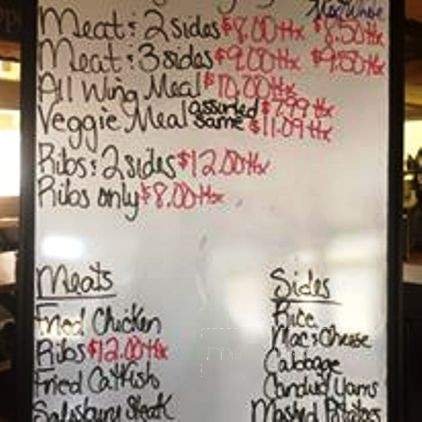 Meat: 2 sides $8.00 +tx $8.50 +tx
Meat: 3 sides $9.00 +tx $9.50 +tx
All Wing Meal $10.00 +tx
Veggie Meal assorted $7.99 +tx
same $11.09 +tx
Ribs: 2 sides $12.00 +tx
Ribs only $8.00 +tx
Meats
Fried Chicken
Ribs $12.00 +tx
Fried Catfish
Salisbury Steak
Sides
Rice
Mac & Cheese
Cabbage
Candied Yams
Mashed Potatoes